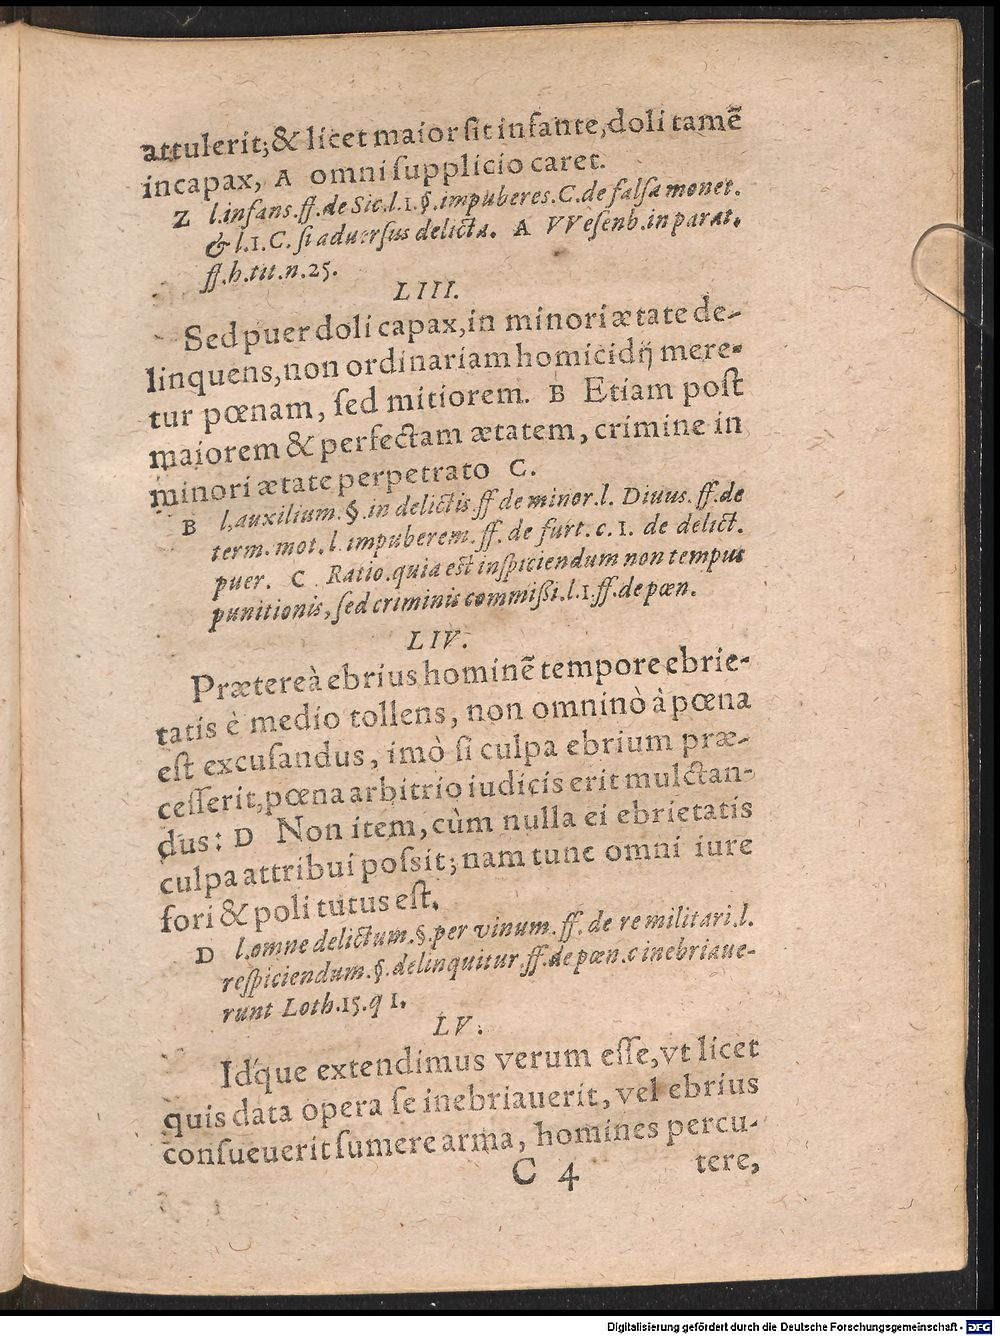 attulerit; & licet maior sit infante, doli tamẽ
incapax, A omni supplicio caret.
Z l. infans. ff. de Sic. l. 1. §. impuberes. C. de falsa monet.
& l. 1. C. si aduersus delicta. A VVesenb. in parat.
ff. h. tit. n. 25.
LIII.
Sed puer doli capax, in minori ætate de-
linquens, non ordinariam homicidij mere-
tur pœnam, sed mitiorem. B Etiam post
maiorem & perfectam ætatem, crimine in
minori ætate perpetrato C.
B l. auxilium. §. in delictis ff de minor. l. Diuus. ff. de
term. mot. l. impuberem. ff. de furt. c. 1. de delict.
puer. C Ratio. quia est inspiciendum non tempus
punitionis, sed criminis commißi. l. 1. ff. de pœn.
LIV.
Prætereà ebrius hominẽ tempore ebrie-
tatis è medio tollens, non omninò à pœna
est excusandus, imò si culpa ebrium præ-
cesserit, pœna arbitrio iudicis erit mulctan-
dus: D Non item, cùm nulla ei ebrietatis
culpa attribui possit; nam tunc omni iure
fori & poli tutus est.
D l. omne delictum. §. per vinum. ff. de re militari. l.
respiciendum. §. delinquitur. ff. de pœn. c inebriaue-
runt Loth. 15. q 1.
LV.
Id́que extendimus verum esse, vt licet
quis data opera se inebriauerit, vel ebrius
consueuerit sumere arma, homines percu-
C 4 tere,
Digitalisierung gefördert durch die Deutsche Forschungsgemeinschaft - DFG